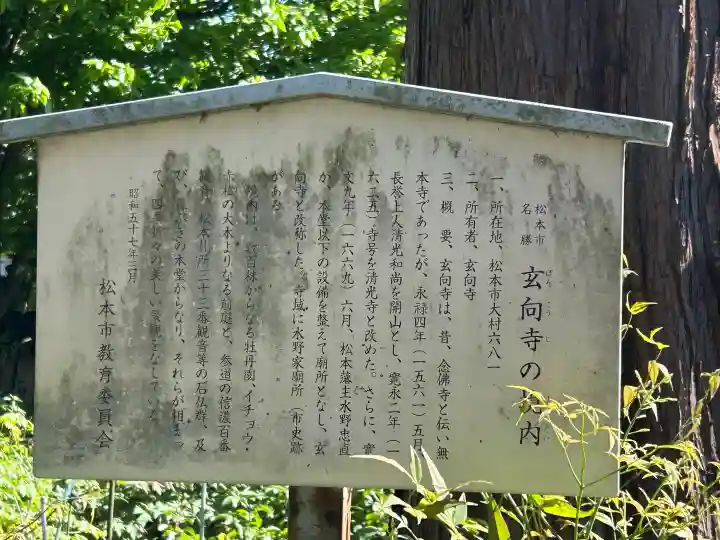 松本市
名勝
玄向寺の境内
げんこうじ
一、所在地、松本市大村六八一
二、所有者、玄向寺
三、概　要、玄向寺は、昔、念佛寺と伝い無
本寺であったが、永禄四年（一五六一）五月
長誉上人清光和尚を開山とし、寛永二年（一
六二五）寺号を清光寺と改めた。さらに、寛
文九年（一六六九）六月、松本藩主水野忠直
が、本堂以下の設備を整えて廟所となし、玄
向寺と改称した。寺域に水野家廟所（市史跡
がある
境内は、百株からなる牡丹園、イチョウ・
赤松の大木よりなる前庭と、参道の信濃百番
観音、松本川所三十三番観音等の石仏群、及
び、きの本堂からなり、それらが相まっ
て、四季折々の美しい景観をなしている
昭和五十七年三月
松本市教育委員会